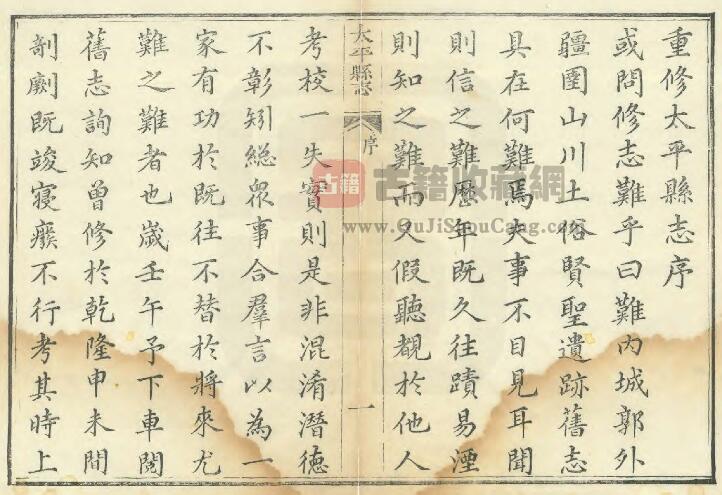 重修太平縣志序
或問修志難乎曰難內城郭外
疆圉山川土俗賢聖遺跡舊志
具在何難焉夫事不目見耳聞
則信之難歷年既久往蹟易湮
則知之難而又假聽覩於他人
太平縣志 序 一
考校一失實則是非混淆潛德
不彰矧總眾事合羣言以為一
家有功於既往不替於將來尤
難之難者也歲壬午予下車閱
舊志詢知曾修於乾隆申未間
剞劂既竣寢癈不行考其時上
古籍 古籍收藏網
www.GuJiShouCang.com